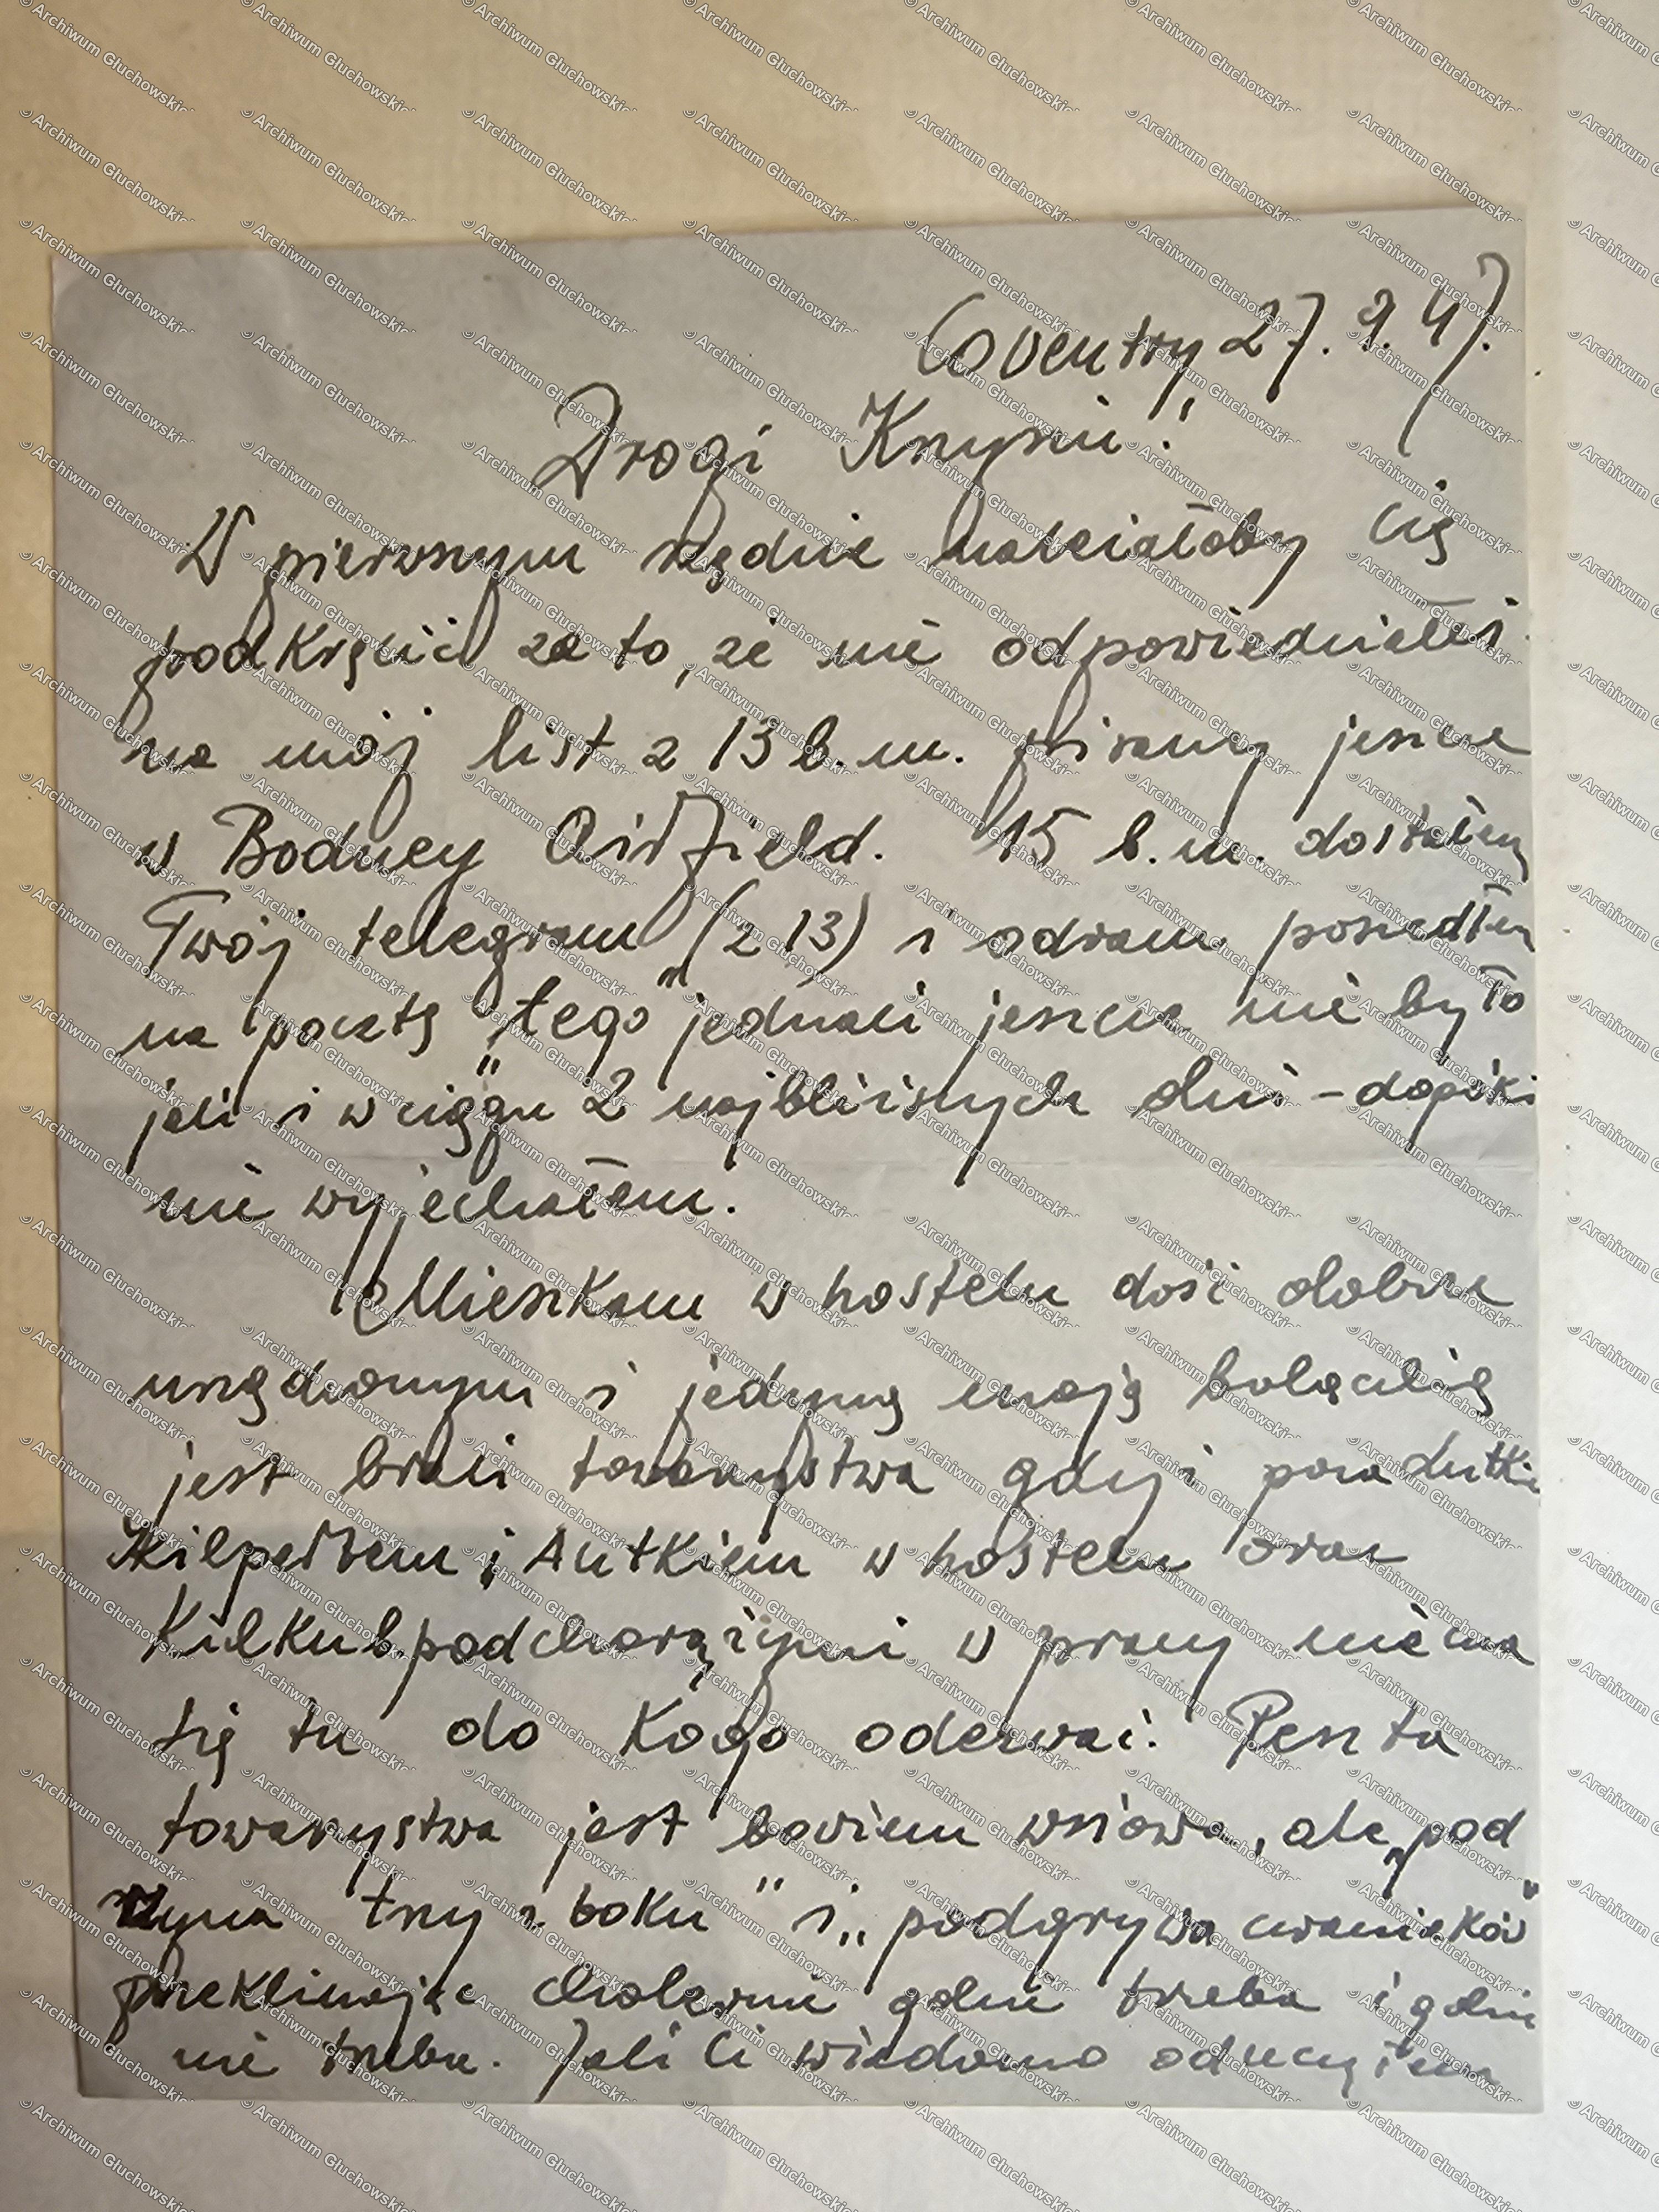 Coventry 27. 9. 47.
Drogi Krzysiu!
W pierwszym rzędzie należałoby Cię
podkręcić za to, że nie odpowiedziałeś
na mój list z 13 b.m. pisany jeszcze
w Bodney Airfield. 15 b.m. dostałem
Twój telegram (z 13) i odrazu poszedłem
na pocztę „tego" jednak jeszcze nie było
jak i w ciągu 2 najbliższych dni – dopóki
nie wyjechałem.
Mieszkam w hostelu dość dobrze
urządzonym i jedyną moją bolączką
jest brak towarzystwa gdyż poza dutki
i Antkiem w hostelu oraz
kilku b. podchorążymi w pracy nie ma
się tu do kogo oderwać. Reszta
towarzystwa jest bowiem wsiowa, ale „pod
rzyna trzy z boku" i „podgrywa cwaniaków"
przeklinając cholernie gdzie trzeba i gdzie
nie trzeba. Jak Ci wiadomo odzwyczaiłem
© Archiwum Głuchowskich